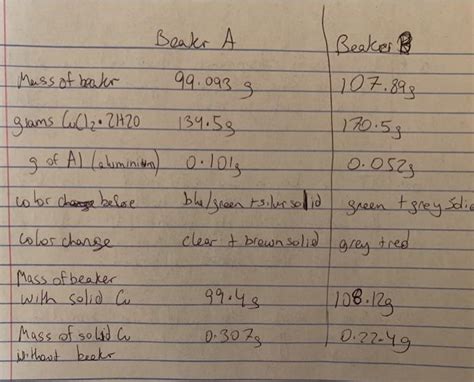 Beakr A Beaker B
Mass of beakr 99.093 g 107.89g
grams CuCl2•2H2O 139.5g 170.5g
g of Al (aluminium) 0.101g 0.052g
color change before blu/green + silur solid green + grey solid
color change clear + brown solid grey + red
Mass of beaker
with solid Cu 99.4g 108.12g
Mass of solid Cu 0.307g 0.22.4g
without beakr